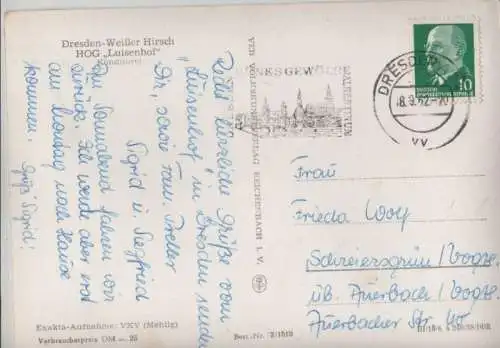 Dresden-Weißer Hirsch
HOG „Luisenhof"
Recht herzliche Grüße vom
„Luisenhof" in Dresden senden
Dir, sowie Fam.
Sigrid u. Siegfried
Am Sonnabend fahren wir
zurück. Ich werde aber erst
am Montag nach Hause
kommen.
Gruß Sigrid!
Exakta-Aufnahme: VKV (Mehlig)
Verbraucherpreis DM —.25
Best.-Nr.
REICHENBACH I. V.
GRÜNES GEWÖLBE
DRESDEN
DEUTSCHE DEMOKRATISCHE REPUBLIK
10
Frau
Frieda Wolf
Schreiersgrün/Vogtl.
üb. Auerbach/Vogtl.
Auerbacher Str. 40